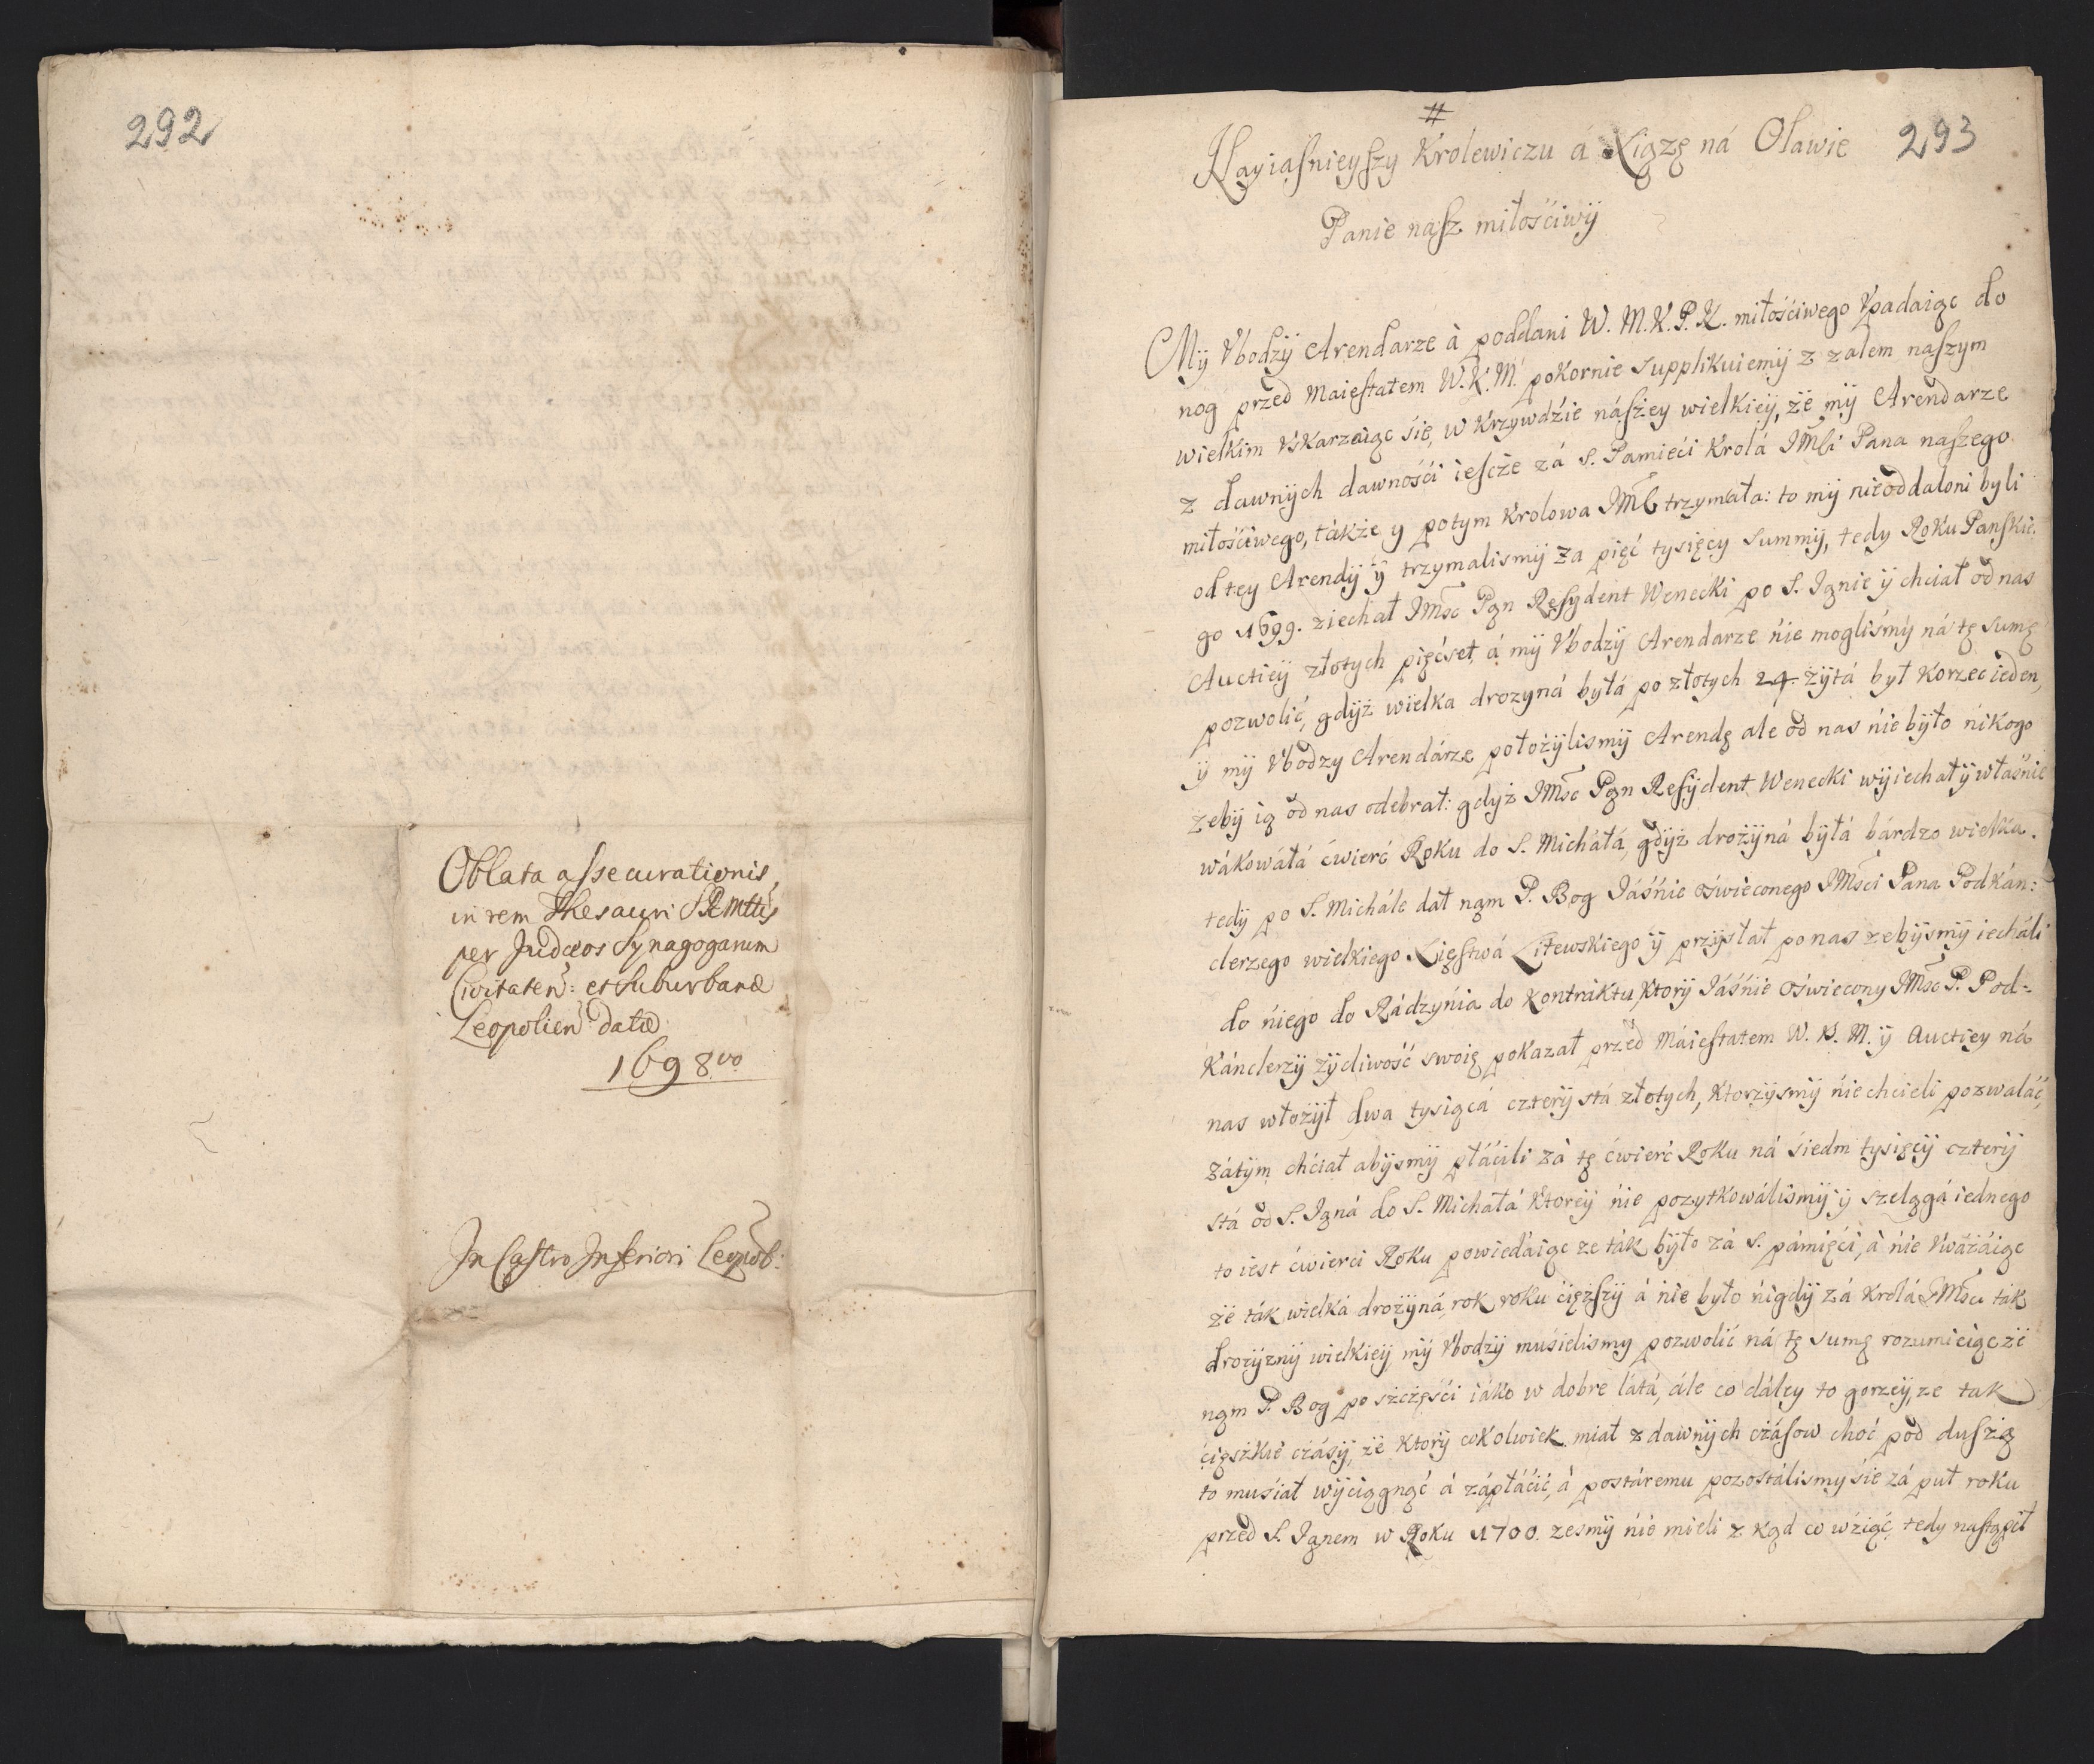 292
Oblata assecurationis
in rem Thesauri SRMttis
per Judæos Synagogarum
Civitaten: et Suburbanæ
Leopolien datæ
1698vo
In Castro Inferiori Leopol:
#
293
Nayiasnieyszy Krolewiczu á Xiązę ná Oławie
Panie nasz miłośćiwÿ
Mÿ Vbodzÿ Arendarze à poddani W. M. K. P. K. miłośćiwego Vpadaiąc do
nog przed Maiestatem W. K. M. pokornie supplikuiemÿ z zalem naszym
wielkim Vskarzaiąc sie, w Krzywdźie nászey wielkieÿ, że mÿ Arendarze
z dawnÿch dawnośći iescże zá s. Pamiećí Krolá JMći Pana naszego
miłośćiwego, tákże y potym Krolowa JMć trzymáła: to mÿ nieoddaloni byli
od tey Arendÿ ÿ trzymalismÿ za pięć tysięcy summÿ, tedy Roku Panskie.
go 1699. ziechał JMśc Pąn Resydent Wenecki po S. Iąnie ÿ chciał od nas
Auctieÿ złotych pięćset, á mÿ Vbodzÿ Arendarze nie moglismÿ ná tę sumę
pozwolić, gdÿż wielka drozyná byłá po złotych 24. żÿtá był korzec ieden,
ÿ mÿ Vbodzy Arendárze położÿlismÿ Arendę ale od nas nie bÿło nikogo
zebÿ ią od nas odebrał: gdyż JMśc Pąn Resÿdent Wenecki wÿiechał ÿ własnie
wákowáłá ćwierć Roku do S. Micháłá, gdÿż drożÿná bÿłá bárdzo wielka.
tedÿ po S. Michále dał nąm P. Bog Jáśnie oświeconego JMśći Pana Podkán:
clerzego wielkiego Xięstwá Litewskiego ÿ przÿsłał po nas zebÿsmÿ iecháli
do niego do Rádzÿnia do Kontráktu, Ktorÿ Jáśnie oświecony JMśc P. Pod-
Kánclerzÿ żÿcliwość swoię pokazał przed Máiestatem W. K. M. ÿ Auctiey ná
nas włożÿł dwa tysiącá czterÿ stá złotych, Ktorzÿsmÿ nie chcieli pozwaláć,
zátÿm chćiał abÿsmÿ płáćili zá tę ćwierć Roku ná śiedm tysięcÿ czterÿ
stá od S. Iąná do S. Micháłá Ktoreÿ nie pozytkowálismÿ ÿ szelągá iednego
to iest ćwierci Roku powiedáiąc ze ták bÿło zá s. pámięći, à nie Vważáiąc
że ták wielká drożÿná, rok roku ćięzszÿ á nie było nigdÿ zá Krolá JMśći ták
drożÿznÿ wielkieÿ mÿ Vbodzÿ musielismy pozwolić ná tę sumę rozumieiąc że
nąm P. Bog poszczęśći iáko w dobre látá, ále co dáley to gorzeÿ, ze tak
ćięszkie czásÿ, że Ktorÿ cokolwiek miał z dawnÿch czásow choć pod duszą
to musiał wÿciągnąć á zápłáćić, à postáremu pozostálismy sie zá puł roku
przed S. Iąnem w Roku 1700. zesmÿ nie mieli z kąd co wziąć, tedy nastąpił